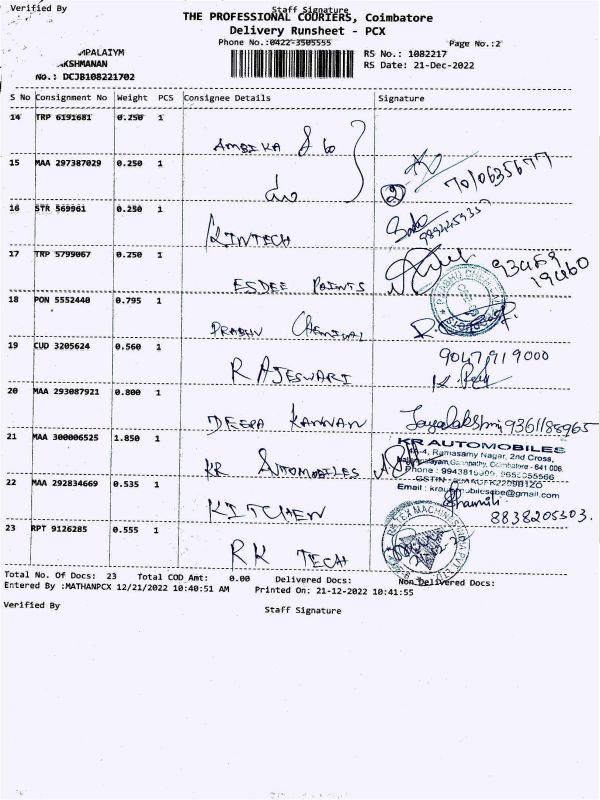 Verified By
Staff Signature
THE PROFESSIONAL COURIERS, Coimbatore
Delivery Runsheet - PCX
Phone No.:0422-3505555
Page No.:2
MPALAIYM
RS No.: 1082217
KSHMANAN
RS Date: 21-Dec-2022
No.: DCJB108221702
S No Consignment No Weight PCS Consignee Details Signature
14 TRP 6191681 0.250 1
AMBIKA & Co
15 MAA 297387029 0.250 1
do
2 7010635677
16 STR 569961 0.250 1
KINTECH
9894259357
17 TRP 5799067 0.250 1
ESDEE PAINTS
93459
19460
18 PON 5552440 0.795 1
PRABHU CHEMICAL
19 CUD 3205624 0.560 1
9047919000
RAJESWARI
20 MAA 293087921 0.800 1
DEEPA KANNAN
Jayalakshmi 9361188965
21 MAA 300006525 1.850 1
KR AUTOMOBILES
Ramasamy Nagar, 2nd Cross,
Ganapathy, Coimbatore - 641 006.
KR AUTOMOBILES
22 MAA 292834669 0.535 1
KITCHEN
Shamili
8838205303.
23 RPT 9126285 0.555 1
RK TECH
Total No. Of Docs: 23 Total COD Amt: 0.00 Delivered Docs: Non Delivered Docs:
Entered By :MATHANPCX 12/21/2022 10:40:51 AM Printed On: 21-12-2022 10:41:55
Verified By
Staff Signature